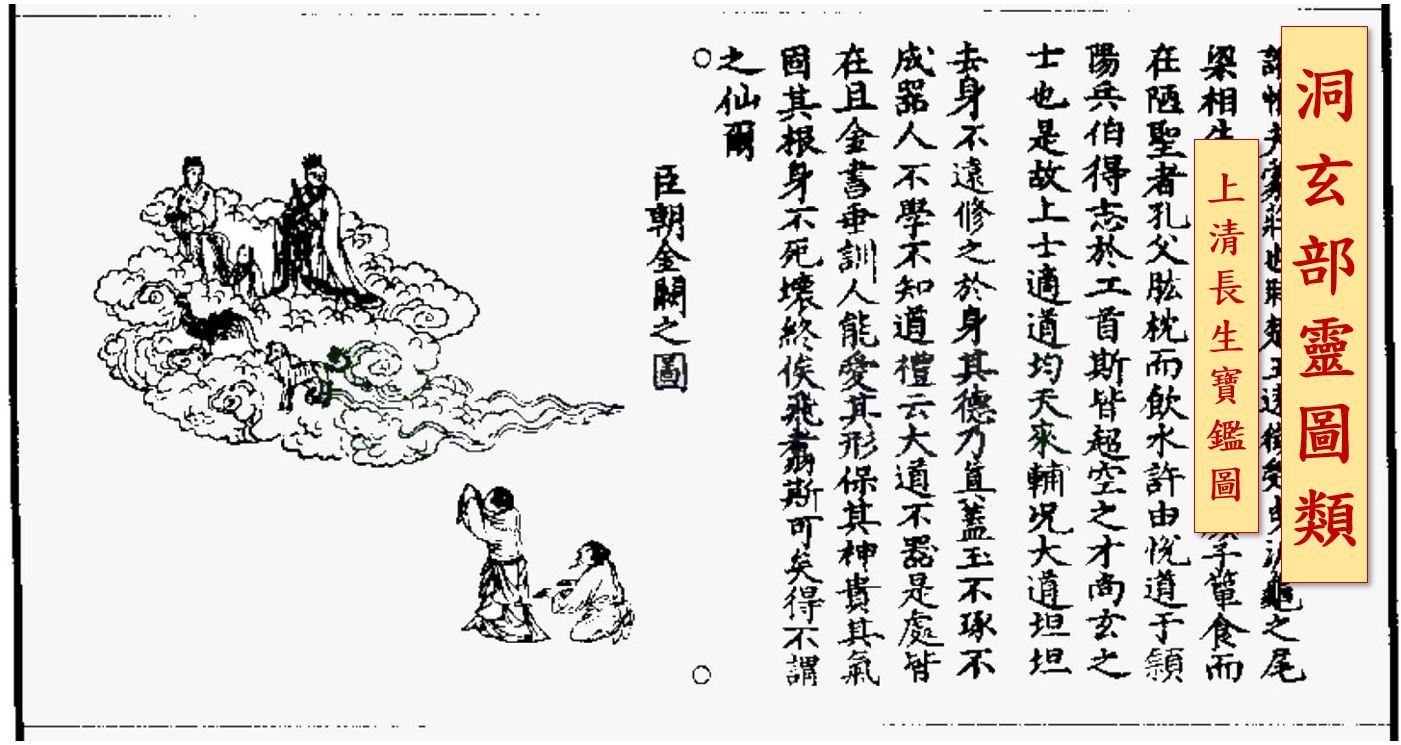 洞玄部靈圖類
上清長生寶鑑圖
之尾
梁相簞食而
在陋聖者孔父肱枕而飲水許由悅道于頴
陽兵伯得志於工首斯皆超空之才尚玄之
士也是故上士適道均天來輔况大道坦坦
去身不遠修之於身其德乃真蓋玉不琢不
成器人不學不知道禮云大道不器是處皆
在且金書垂訓人能愛其形保其神貴其氣
固其根身不死壞終俟飛翥斯可矣得不謂
之仙爾
臣朝金闕之圖